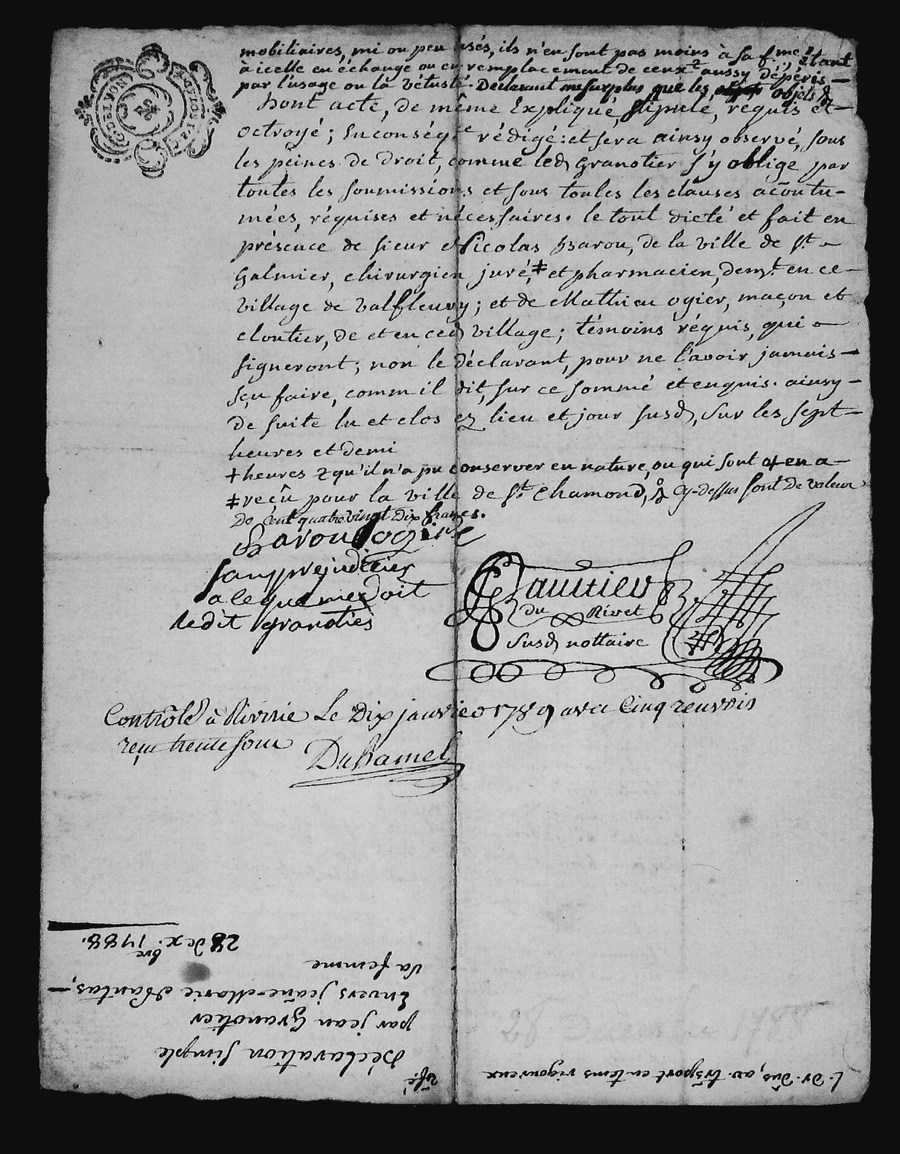 mobiliaires, mi ou peu usés, ils n'en sont pas moins à sa f.me, étant
à icelle en échange ou en remplacement de ceux aussy dépéris
par l'usage ou la vétusté. Declarant au surplus que les objets
Dont acte, de même Expliqué stipulé, requis et
octroyé; En conség.ce rédigé: et sera ainsy observé, sous
les peines de droit, comme led. Granotier s'y oblige par
toutes les soumissions et sous toutes les clauses acoutu-
mées, réquises et nécessaires. le tout dicté et fait en
présence de sieur Nicolas Barou, de la ville de St
Galmier, chirurgien juré,‡ et pharmacien, demt. en ce
village de valfleury; et de Mathieu ogier, maçon et
cloutier, de et en ced. village; témoins réquis, qui
signeront; non le déclarant, pour ne l'avoir jamais
sçu faire, comm il dit, sur ce sommé et enquis. ainsy
de suite lu et clos ez lieu et jour susd., sur les sept
heures et demi
+heures & qu'il n'a pu conserver en nature, ou qui sont en a-
‡reçû pour la ville de St. Chamond, cy-dessus sont de valeur
de Cent quatre vingt dix francs.
Barou Ogier
sans prejudicier
a le que me doit
ledit granotier
Gaultier
du Rivet
susd. nottaire
Contrôlé à Riverie Le Dix janvier 1789 avec Cinq renvois
reçu trente sous
DuHamel
28 Xbre 1788.
Déclaration simple
par jean Granotier
Envers jeane Marie
sa femme
28 Decembre 1788